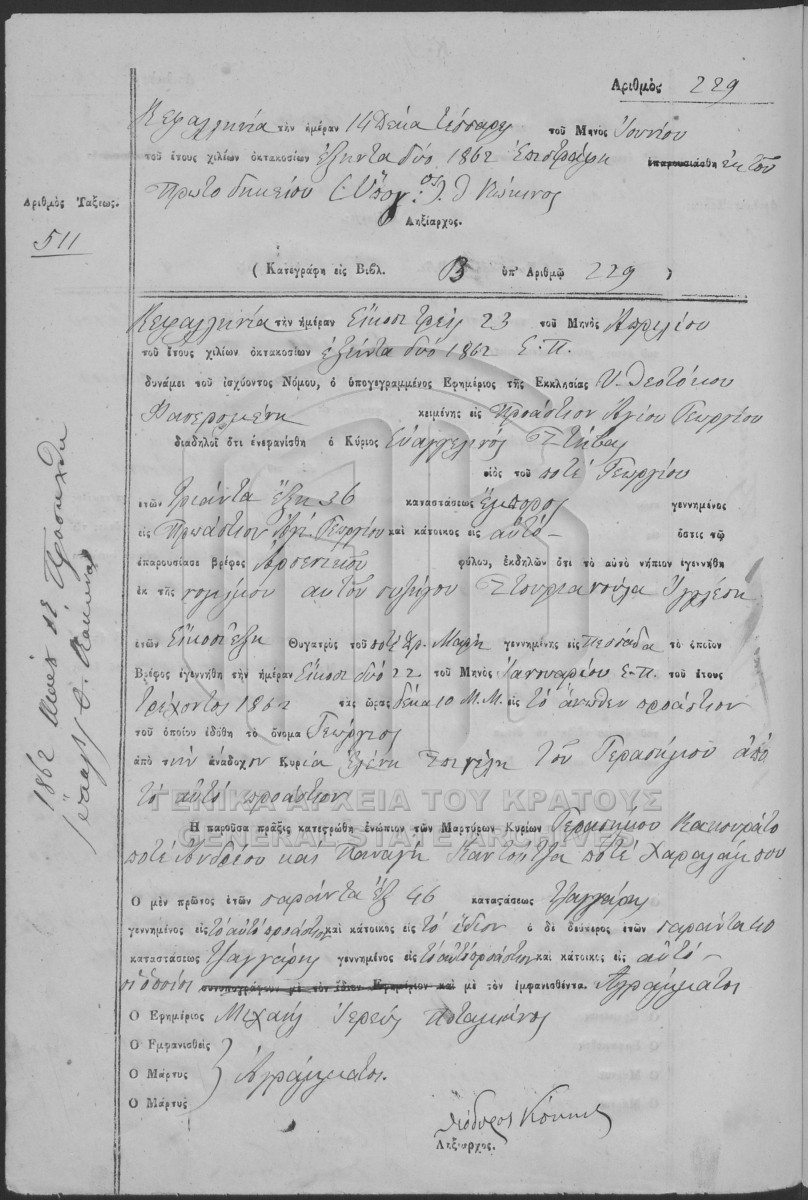 Ἀριθμὸς 229
Κεφαλληνία τὴν ἡμέραν 14 Δέκα τέσσαρες τοῦ Μηνὸς Ἰουνίου
τοῦ ἔτους χιλίων ὀκτακοσίων ἑξῆντα δύο 1862 Ἐπεστράφη ἐπαρουσιάσθη ἐκ τοῦ
Πρωτοδικείου (Ὑπογ: ος) Θ Κόκινος
Ληξίαρχος.
Ἀριθμὸς Τάξεως.
511
( Κατεγράφη εἰς Βιβλ. Β ὑπ' Ἀριθμῷ 229 )
Κεφαλληνία τὴν ἡμέραν Εἴκοσι τρεῖς 23 τοῦ Μηνὸς Ἀπριλίου
τοῦ ἔτους χιλίων ὀκτακοσίων ἑξῆντα δύο 1862 Ε.Π.
δυνάμει τοῦ ἰσχύοντος Νόμου, ὁ ὑπογεγραμμένος Ἐφημέριος τῆς Ἐκκλησίας Υ. Θεοτόκου
κειμένης εἰς Προάστιον Ἁγίου Γεωργίου
διαδηλοῖ ὅτι ἐνεφανίσθη ὁ Κύριος Εὐαγγελινός
υἱὸς τοῦ ποτὲ Γεωργίου
ἐτῶν τριάντα ἕξη 36 καταστάσεως ἔμπορος γεννημένος
εἰς Προάστιον Ἁγ. Γεωργίου καὶ κάτοικος εἰς αὐτό - ὅστις τῷ
ἐπαρουσίασε βρέφος Ἀρσενικοῦ φύλου, ἐκδηλῶν ὅτι τὸ αὐτὸ νήπιον ἐγεννήθη
ἐκ τῆς νομίμου αὐτοῦ συζύγου
ἐτῶν Εἴκοσι ἕξη Θυγατρὸς τοῦ ποτὲ γεννημένης εἰς Πεσσάδα τὸ ὁποῖον
Βρέφος ἐγεννήθη τὴν ἡμέραν Εἴκοσι δύο 22 τοῦ Μηνὸς Ἰανουαρίου Ε.Π. τοῦ ἔτους
τρέχοντος 1862 τὰς ὥρας δέκα 10 Μ.Μ. εἰς τὸ ἄνωθεν προάστιον
τοῦ ὁποίου ἐδόθη τὸ ὄνομα Γεώργιος
ἀπὸ τὴν ἀνάδοχον Κυρία Ἑλένη τοῦ Γερασήμου ἀπὸ
τὸ αὐτὸ προάστιον
ΓΕΝΙΚΑ ΑΡΧΕΙΑ ΤΟΥ ΚΡΑΤΟΥΣ
GENERAL STATE ARCHIVES
Ἡ παροῦσα πρᾶξις κατεστρώθη ἐνώπιον τῶν Μαρτύρων Κυρίων Γερασήμου
ποτὲ Ἀνδρέου καὶ Παναγῆ ποτὲ Χαραλάμπου
Ὁ μὲν πρῶτος ἐτῶν σαράντα ἕξ 46 καταστάσεως τζαγγάρης
γεννημένος εἰς τὸ αὐτὸ προάστιον καὶ κάτοικος εἰς τὸ ἴδιον ὁ δὲ δεύτερος ἐτῶν σαράντα 40
καταστάσεως τζαγγάρης γεννημένος εἰς τὸ αὐτὸ προάστιον καὶ κάτοικος εἰς αὐτό -
οἱ ὁποῖοι συνυπογράφουν μὲ τὸν ἴδιον Ἐφημέριον καὶ μὲ τὸν ἐμφανισθέντα. Ἀγράμματοι
Ὁ Ἐφημέριος Μιχαὴλ Ἱερεὺς Ποταμιάνος
Ὁ Ἐμφανισθεὶς
Ὁ Μάρτυς Ἀγράμματοι.
Ὁ Μάρτυς
Ληξίαρχος.
1862